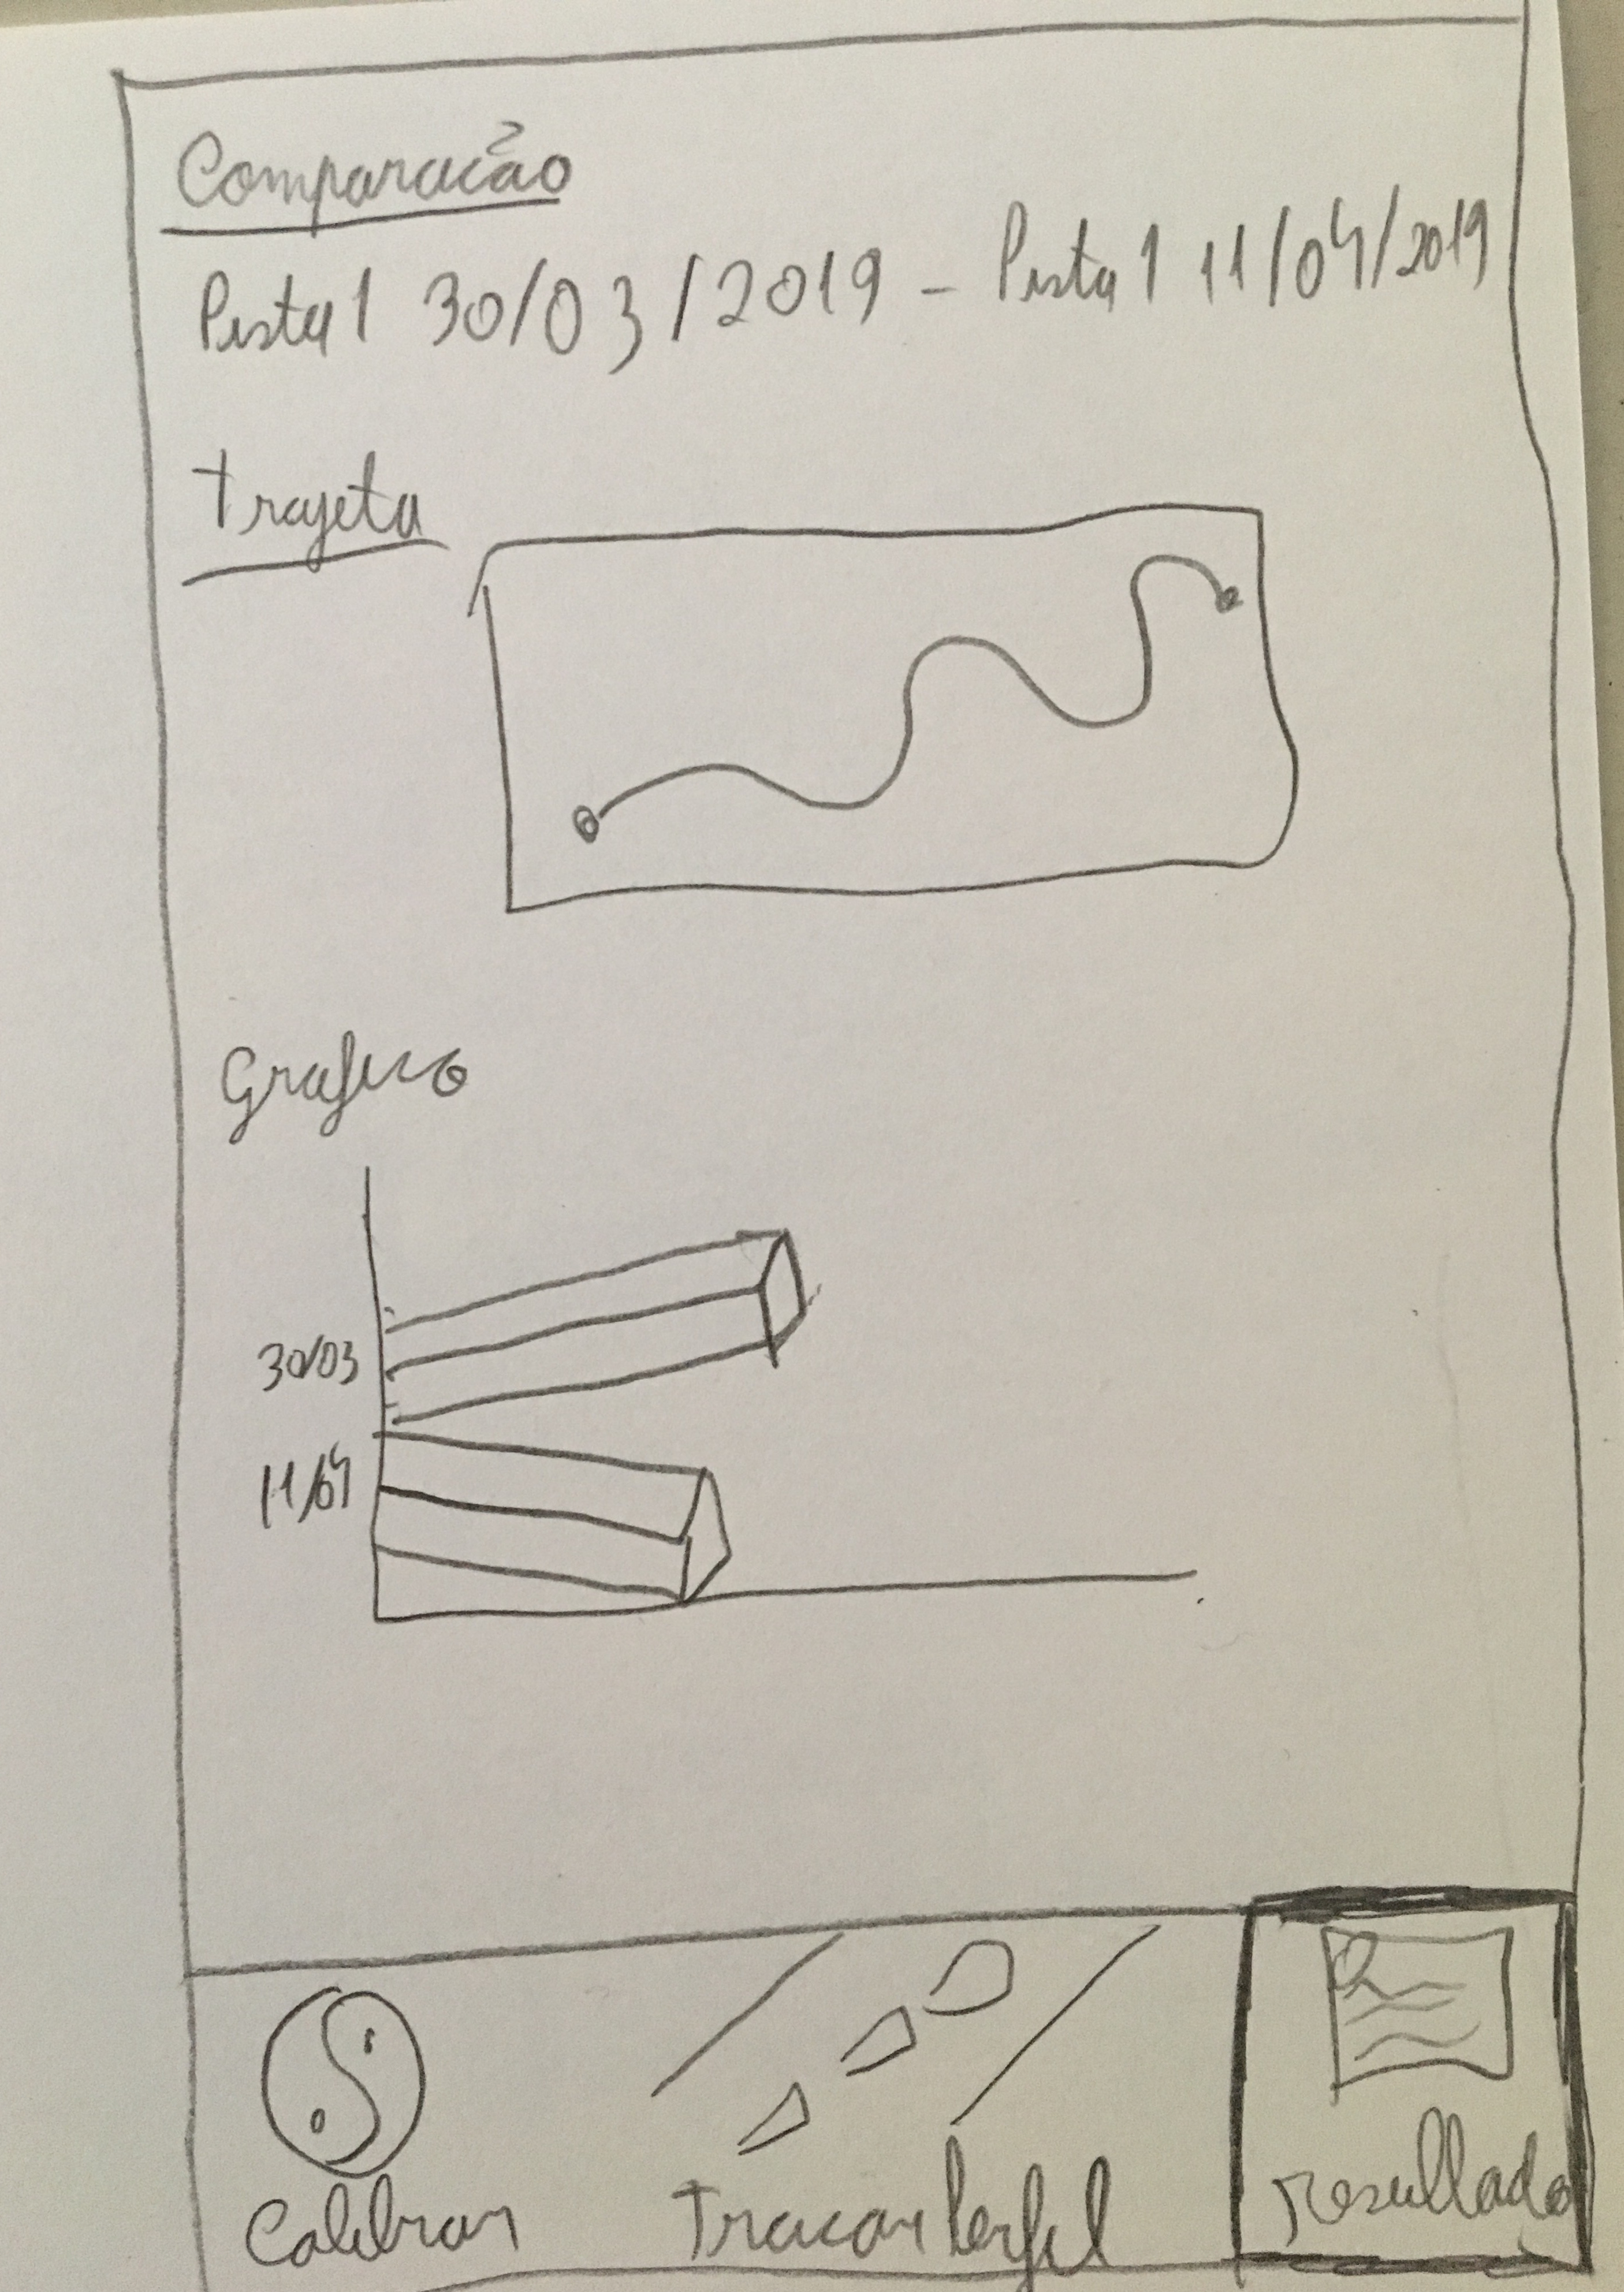 Comparacão
Pista 1 30/03/2019 - Pista 1 11/04/2019
Trajeto
Grafico
30/03
11/04
Calibrar
Tracar Perfil
resultado